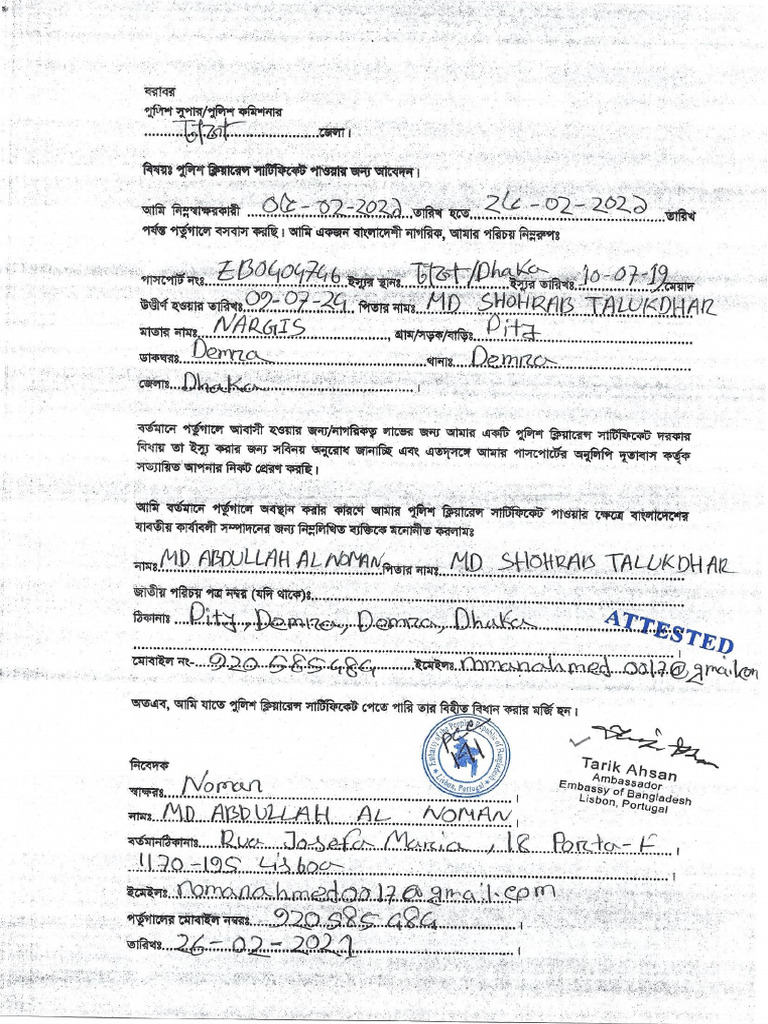 বরাবর
পুলিশ সুপার/পুলিশ কমিশনার
ঢাকা জেলা।
বিষয়ঃ পুলিশ ক্লিয়ারেন্স সার্টিফিকেট পাওয়ার জন্য আবেদন।
আমি নিম্নস্বাক্ষরকারী তারিখ হতে তারিখ
পর্যন্ত পর্তুগালে বসবাস করছি। আমি একজন বাংলাদেশী নাগরিক, আমার পরিচয় নিম্নরুপঃ
পাসপোর্ট নংঃ EB0404746 ইস্যুর স্থানঃ ঢাকা/Dhaka ইস্যুর তারিখঃ 10-07-19 মেয়াদ
উত্তীর্ণ হওয়ার তারিখঃ 09-07-24 পিতার নামঃ MD SHOHRAB TALUKDHAR
মাতার নামঃ NARGIS, গ্রাম/সড়ক/বাড়িঃ
ডাকঘরঃ Demra থানাঃ Demra
জেলাঃ Dhaka ।
বর্তমানে পর্তুগালে আবাসী হওয়ার জন্য/নাগরিকত্ব লাভের জন্য আমার একটি পুলিশ ক্লিয়ারেন্স সার্টিফিকেট দরকার
বিধায় তা ইস্যু করার জন্য সবিনয় অনুরোধ জানাচ্ছি এবং এতদ্সঙ্গে আমার পাসপোর্টের অনুলিপি দূতাবাস কর্তৃক
সত্যায়িত আপনার নিকট প্রেরণ করছি।
আমি বর্তমানে পর্তুগালে অবস্থান করার কারণে আমার পুলিশ ক্লিয়ারেন্স সার্টিফিকেট পাওয়ার ক্ষেত্রে বাংলাদেশের
যাবতীয় কার্যাবলী সম্পাদনের জন্য নিম্নলিখিত ব্যক্তিকে মনোনীত করলামঃ
নামঃ MD ABDULLAH AL NOMAN পিতার নামঃ MD SHOHRAB TALUKDHAR
জাতীয় পরিচয় পত্র নম্বর (যদি থাকে)ঃ
ঠিকানাঃ Demra, Demra, Dhaka
ATTESTED
মোবাইল নং- 920 585 484 ইমেইলঃ nomanahmed.0017@gmail.com
অতএব, আমি যাতে পুলিশ ক্লিয়ারেন্স সার্টিফিকেট পেতে পারি তার বিহীত বিধান করার মর্জি হন।
Embassy of the People's Republic of Bangladesh
Lisbon, Portugal
Tarik Ahsan
Ambassador
Embassy of Bangladesh
Lisbon, Portugal
নিবেদক
স্বাক্ষরঃ Noman ।
নামঃ MD ABDULLAH AL NOMAN ।
বর্তমানঠিকানাঃ Rua Josefa Maria, 18 Porta-F ।
1170-195 Lisboa ।
ইমেইলঃ nomanahmed0017@gmail.com
পর্তুগালের মোবাইল নম্বরঃ 920 585 484 ।
তারিখঃ 26-02-2021 ।